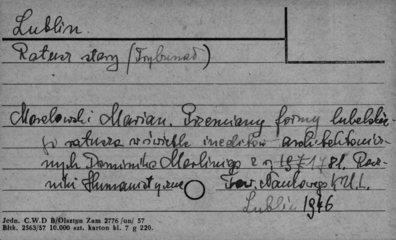 Lublin.
Ratusz stary (Trybunał)
Morelowski Marian. Przemiany formy lubelskie-
go ratusza w świetle ineditów architektonicz-
nych Dominika Merliniego z r. 1781. Rocz-
niki Humanistyczne Tow. Naukowego K.U.L.
Lublin 1946
Jedn. C.W.D B/Olsztyn Zam 2776/on/57
Bltk. 2563/57 10.000 szt. karton kl. 7 g 220.